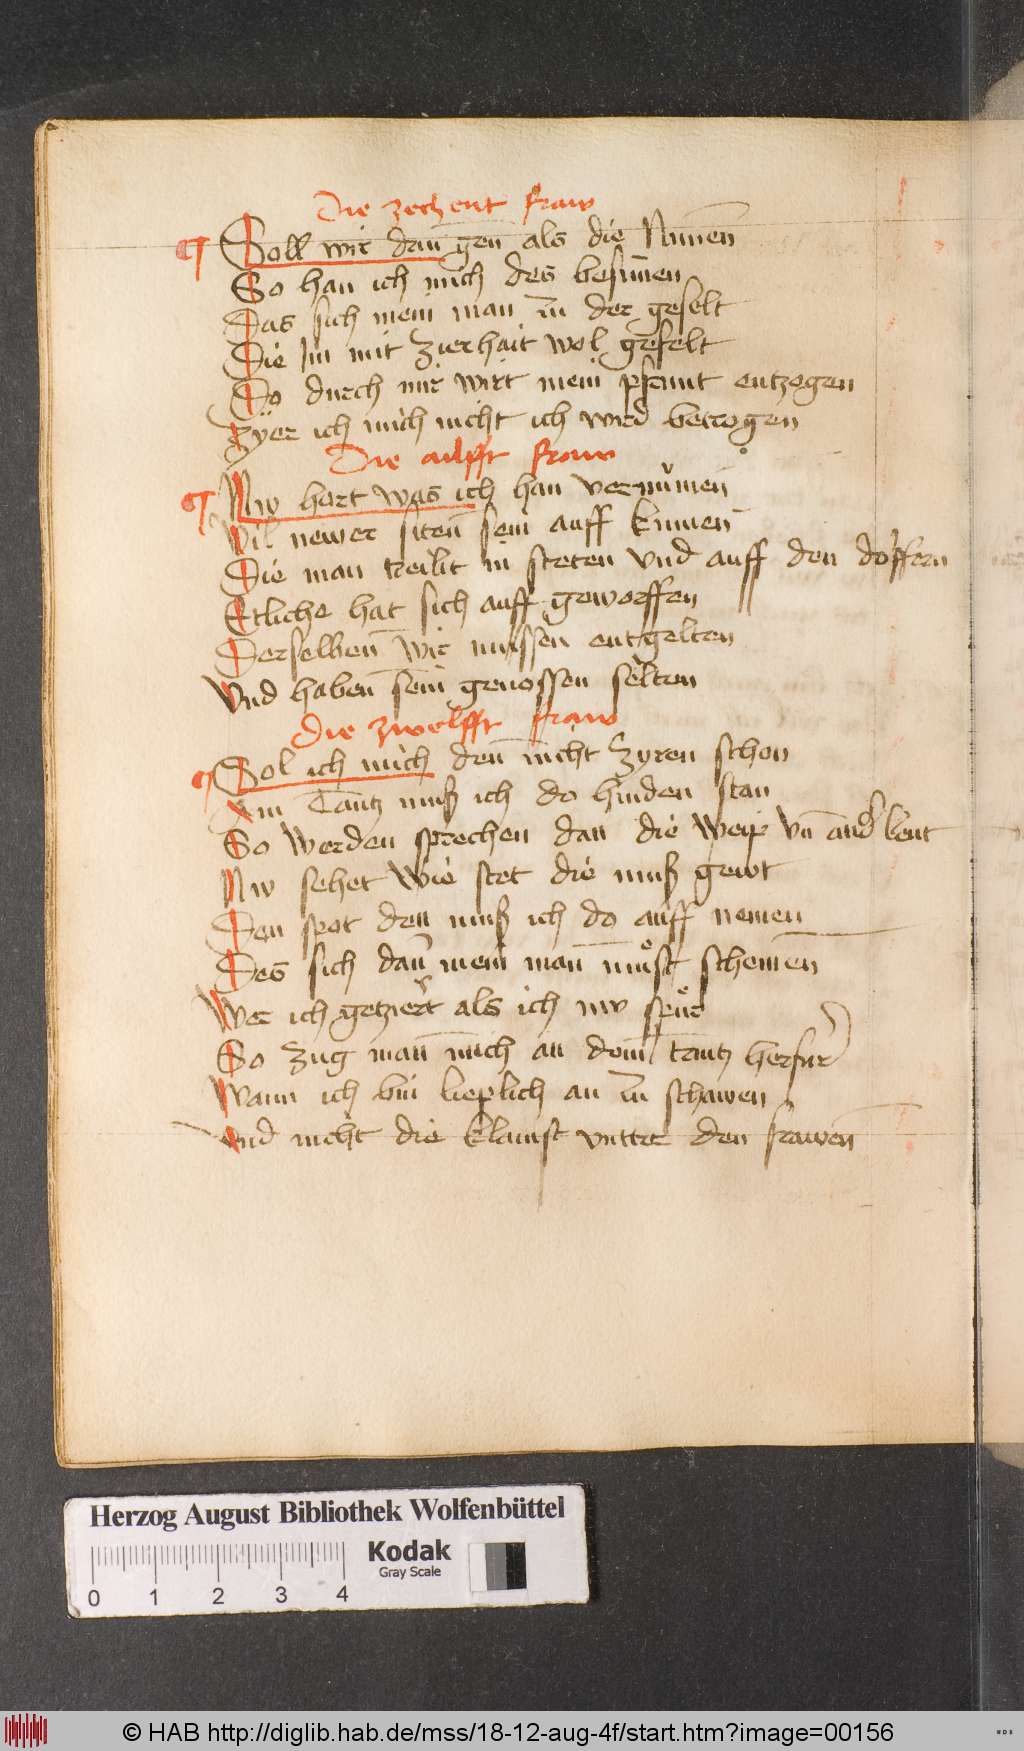 Die zechent fraw
Soll wir dan̄ gen als die Nunnen̄
So han ich mich des besūnen
Das sich mein man zu der geselt
Die Im mit zierhait wol gefelt
Do durch mir wirt mein pfrunt entzogen
Zyer ich mich nicht ich wird betrogen
Die ailfft fraw
Nw hort was ich han vernūmen
Wil newer siten̄ sein auff kumen̄
Die man treibt in steten vnd auff den dorffern
Etliche hat sich auff geworffen
Derselben̄ wir mussen entgelten
Vnd haben̄ sein genossen selten
Die zwelfft fraw
Sol ich mich den̄ nicht zyren schon
Am Tantz muß ich do hinden stan
So werden sprechen dan die weip vn̄ and' leut
Nw sehet wie stet die muß gewt
Den spot den muß ich do auff nemen
Des sich dan̄ mein man̄ muͦst schemen̄
Wer ich getziert als ich nw spur
So zug man̄ mich an dem tantz herfur
Wann ich bin lieplich an zu schawen
Vnd nicht die klainst vntter den frawen̄
Herzog August Bibliothek Wolfenbüttel
Kodak
Gray Scale
0 1 2 3 4
© HAB http://diglib.hab.de/mss/18-12-aug-4f/start.htm?image=00156